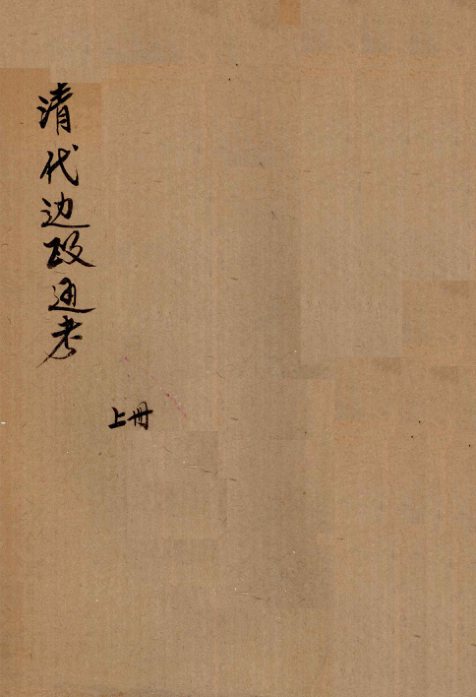 清代边政通考
上册